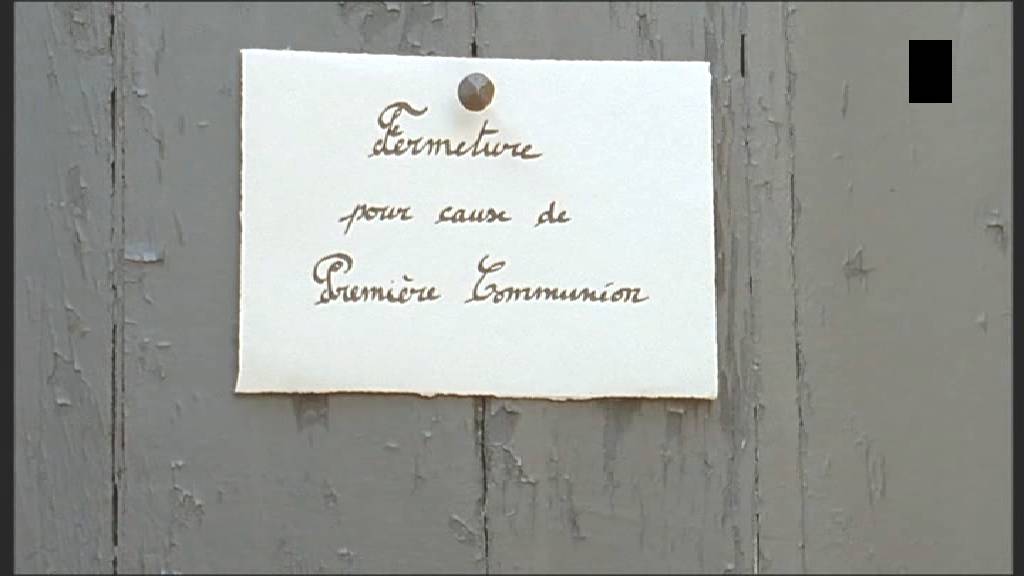 Fermeture
pour cause de
Première Communion